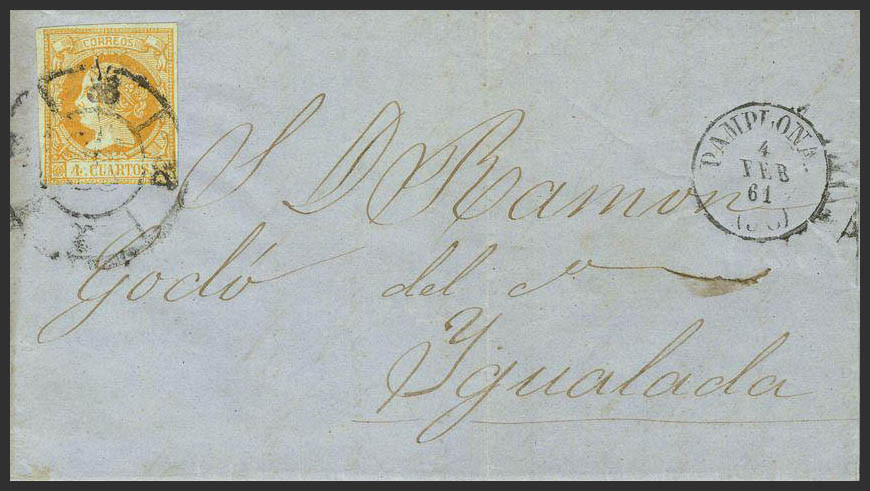 CORREOS
4 CUARTOS
PAMPLONA
4
FEB
61
S D Ramon
Godó del Cº
Ygualada